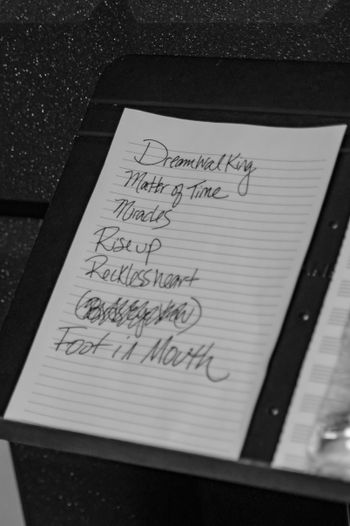 Dreamwalking
Matter of Time
Miracles
Rise up
Reckless heart
Foot in Mouth